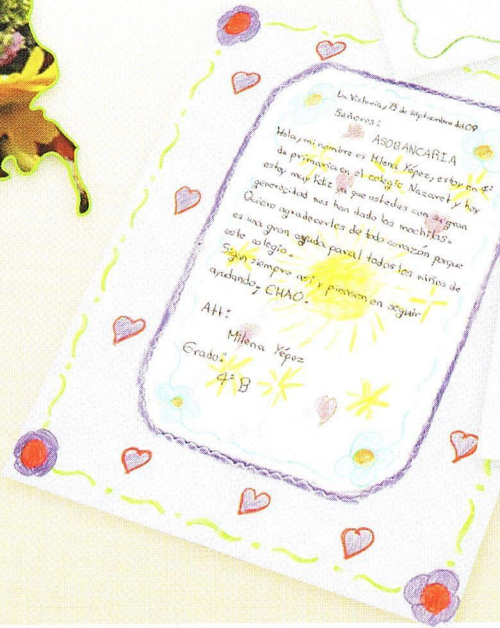 La Victoria, 15 de septiembre del 09
Señores:
ASOBANCARIA
Hola, mi nombre es Milena Yépez, estoy en 4º
de primaria en el colegio Nazaret y hoy
estoy muy feliz ya que ustedes con su gran
generosidad nos han dado las mochilas.
Quiero agradecerles de todo corazón porque
es una gran ayuda para todos los niños de
este colegio.
Sigan siempre así y piensen en seguir
ayudando, CHAO.
Att:
Milena Yépez
Grado:
4º B